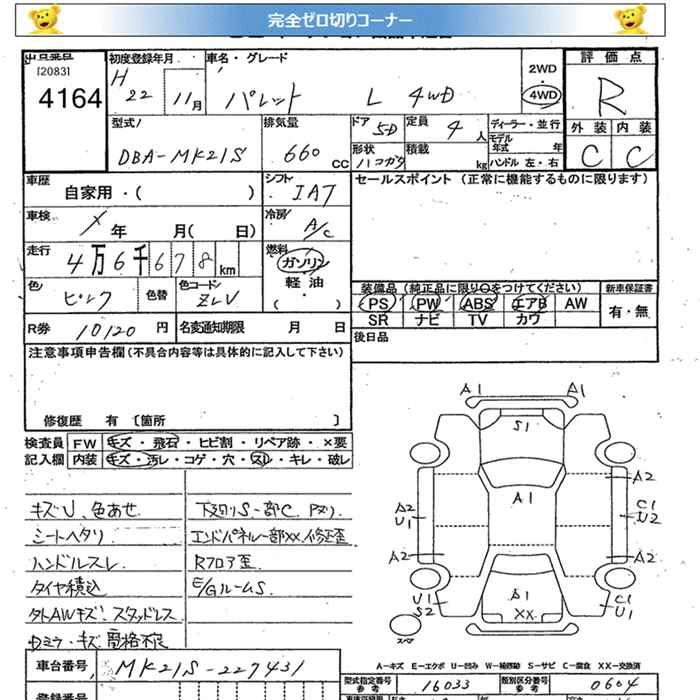 完全ゼロ切りコーナー
出品番号
[2083]
4164
初度登録年月
H 22 11月
車名・グレード
パレット L 4WD
2WD
4WD
評価点
R
外装 内装
C C
型式
DBA-MK21S
排気量
660 CC
ドア 5D
定員 4 人
形状 ハコガタ
積載 kg
ディーラー・並行
モデル年式 年
ハンドル 左・右
車歴
自家用・( )
シフト
IAT
セールスポイント (正常に機能するものに限ります)
車検
X 年 月( 日)
冷房
A/C
走行
4万6千678km
燃料
ガソリン
軽油
( )
色
ピンク
色替
色コード
ZLV
装備品 (純正品に限り○をつけてください)
新車保証書
PS PW ABS エアB AW
SR ナビ TV カワ
有・無
R券 10120 円
名変通知期限 月 日
後日品
注意事項申告欄 (不具合内容等は具体的に記入して下さい)
修復歴 有 〔箇所 〕
検査員
記入欄
FW キズ・飛石・ヒビ割・リペア跡・×要
内装 キズ・汚レ・コゲ・穴・スレ・キレ・破レ
キズU、色あせ
シートヘタリ
ハンドルスレ
タイヤ積込
外AWキズ・スタッドレス
下廻りS・一部C
エンドパネル一部XX、修正歪
Rフロア歪
E/GルームS
A1 A1
S1
A1
A2
U1
A2
A2
C1
U2
A2
U1
S2
A1
XX
C1
U1
スペア
A-キズ E-エクボ U-凹み W-補修跡 S-サビ C-腐食 XX-交換済
車台番号
MK21S-227431
型式指定番号
参考
16033
類別区分番号
参考
0604
登録番号